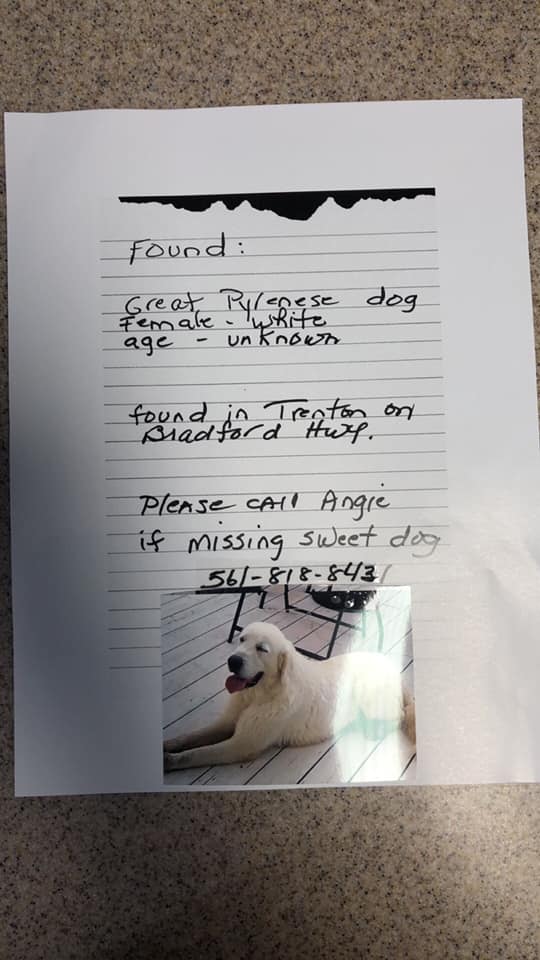 Found:
Great Pyrenese dog
Female - white
age - unknown
found in Trenton on
Bradford Hwy.
Please CAll Angie
if missing sweet dog
561-818-8431